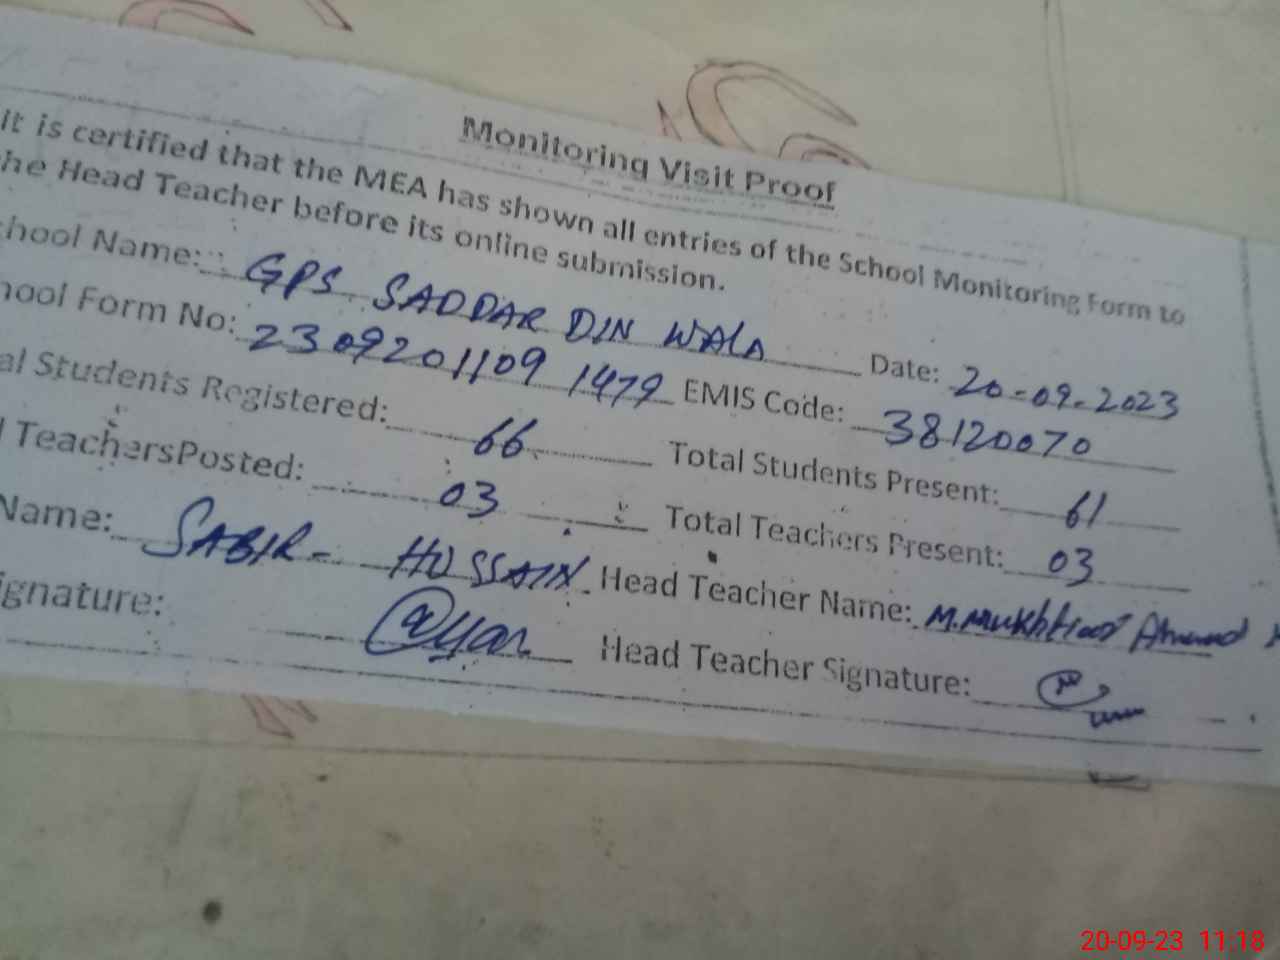 Monitoring Visit Proof
It is certified that the MEA has shown all entries of the School Monitoring Form to
he Head Teacher before its online submission.
chool Name: GPS SADDAR DIN WALA Date: 20-09-2023
hool Form No: 23092011091479 EMIS Code: 38120070
al Students Registered: 66 Total Students Present: 61
l TeachersPosted: 03 Total Teachers Present: 03
Name: SABIR - HUSSAIN Head Teacher Name: M. Mukhtiar Ahmad
ignature: Head Teacher Signature:
20-09-23 11:18